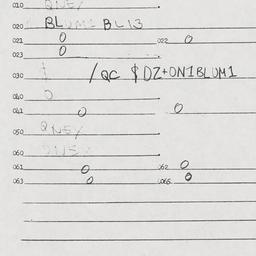 010 QNEY
020 BLUM1 BL13
021 0 022 0
023 0
030 /QC $DZ+ON1BLUM1
040 0
041 0 0
050 QNEY
060 QNEY
061 0 062 0
063 0 0